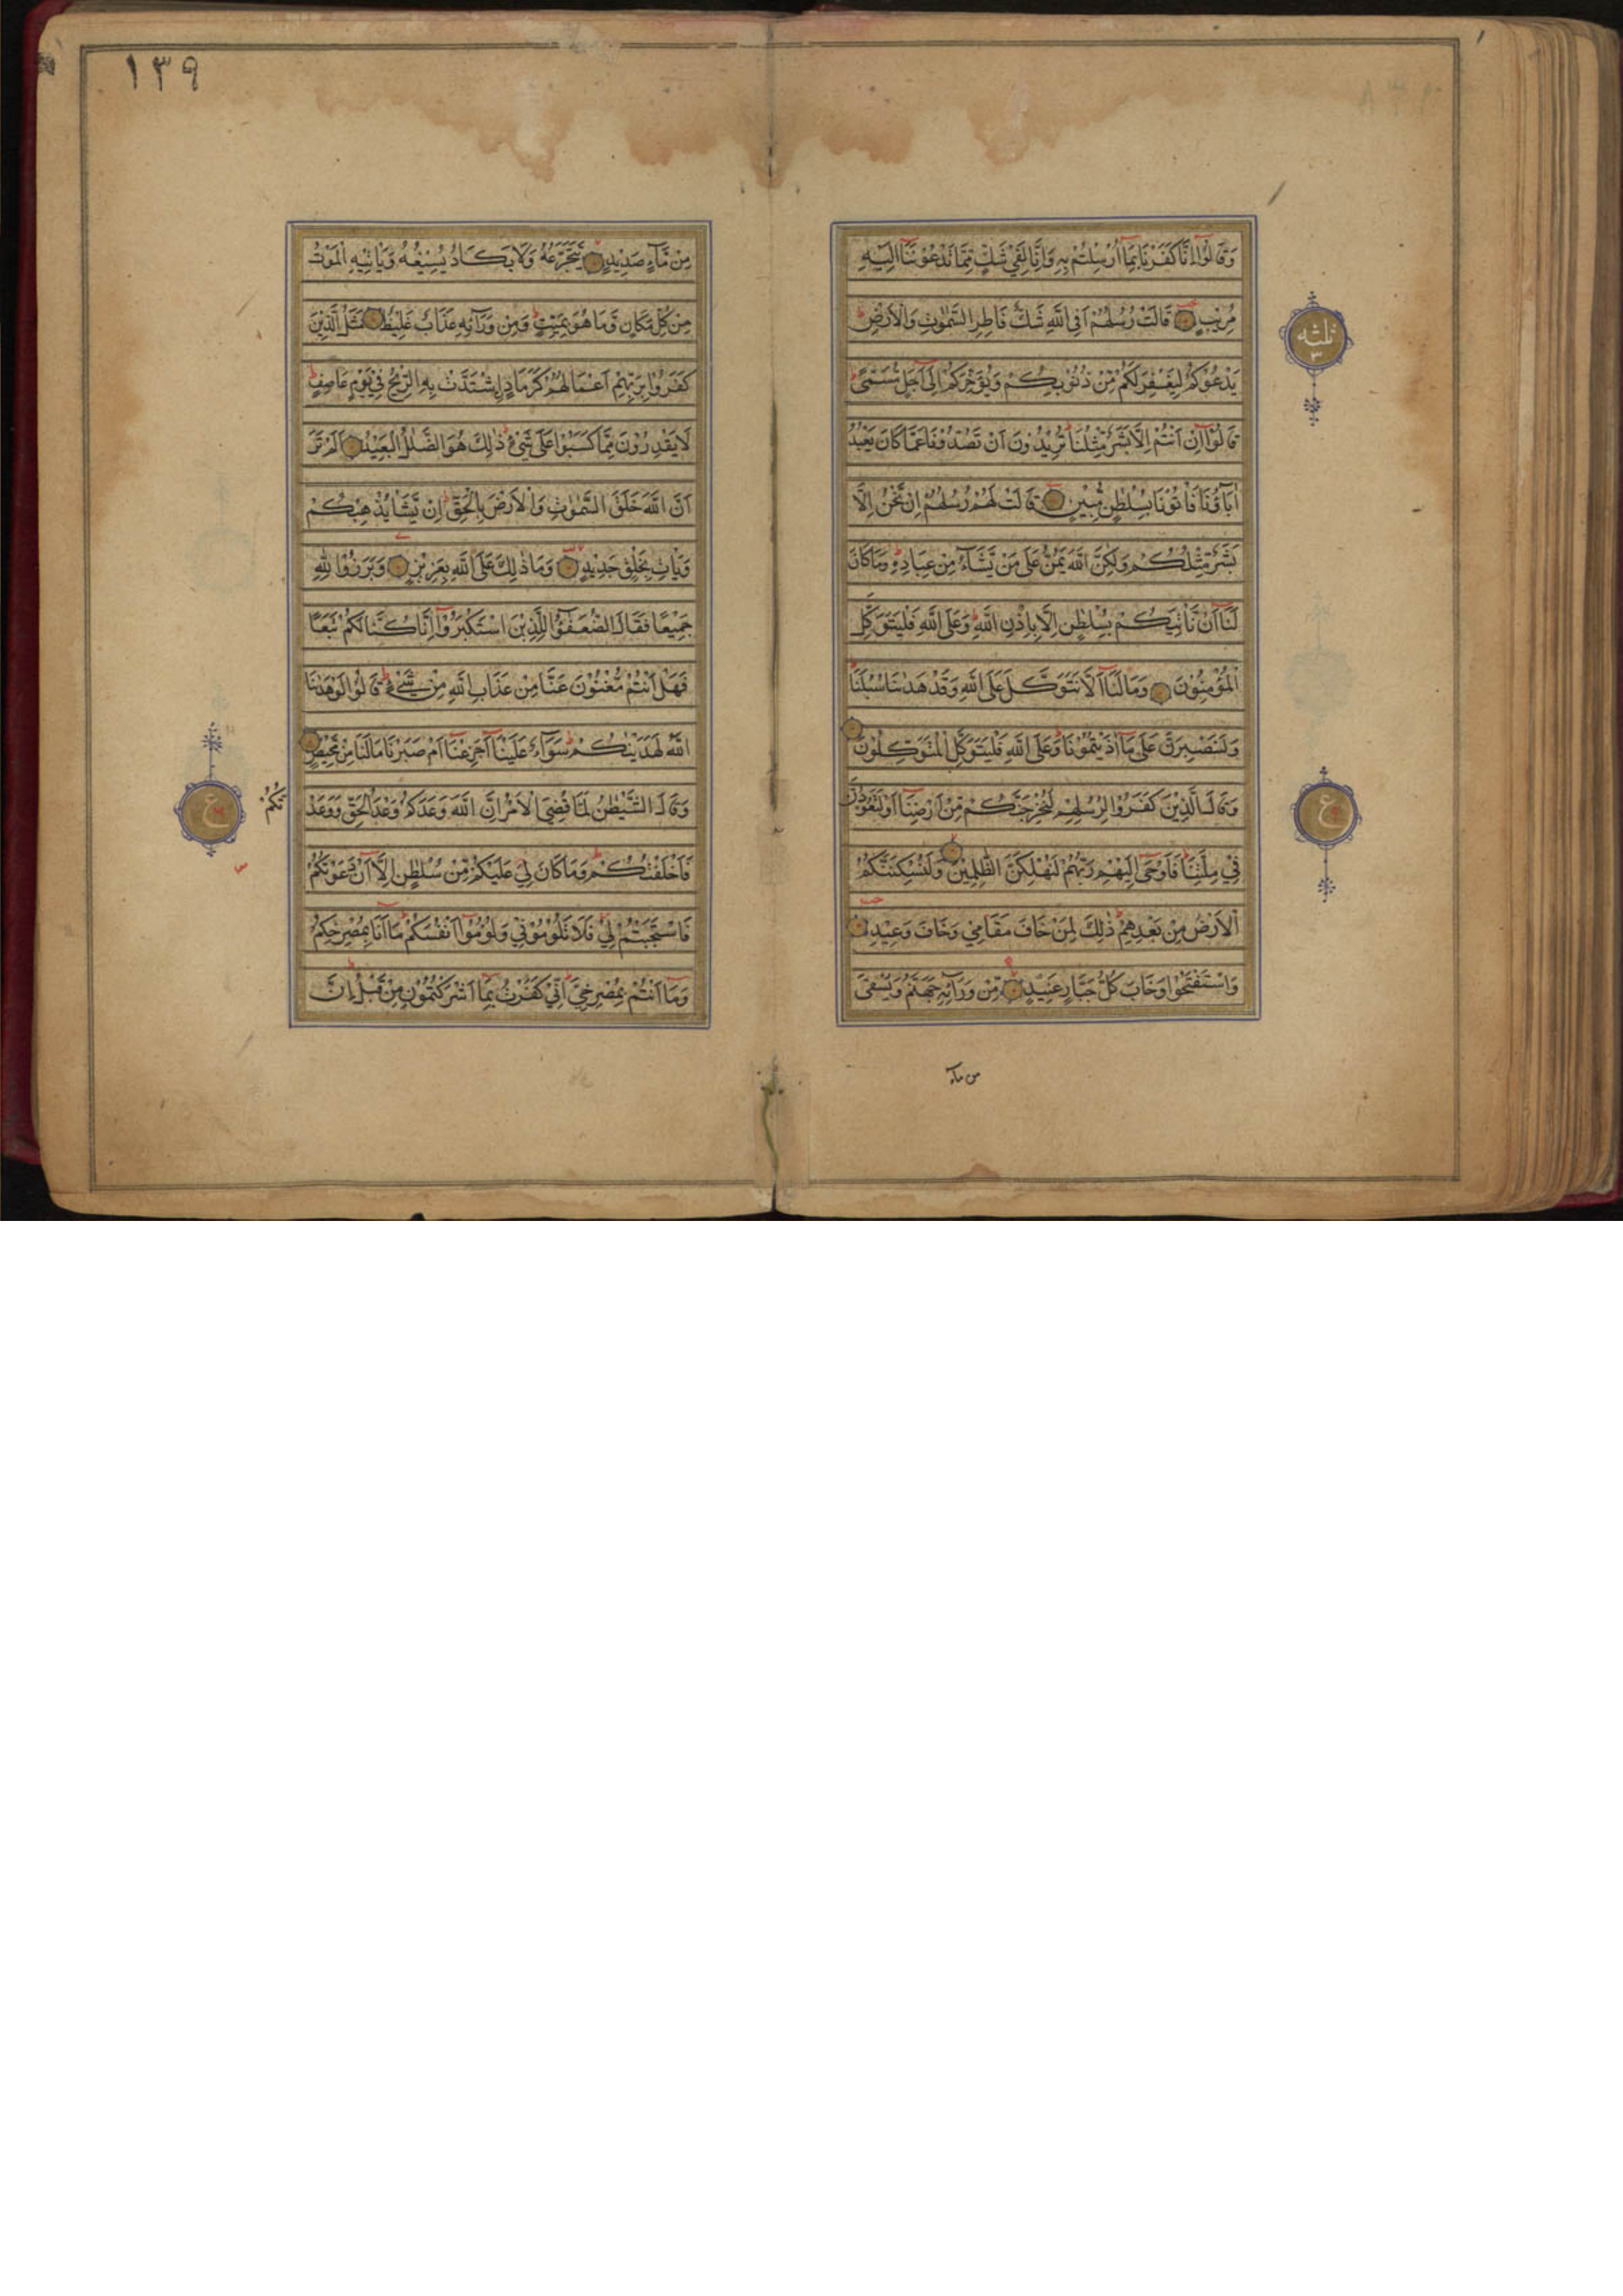 وَقَالُوْٓا اِنَّا كَفَرْنَا بِمَآ اُرْسِلْتُمْ بِهٖ وَاِنَّا لَفِيْ شَكٍّ مِّمَّا تَدْعُوْنَنَآ اِلَيْهِ
مُرِيْبٍ قَالَتْ رُسُلُهُمْ اَفِى اللّٰهِ شَكٌّ فَاطِرِ السَّمٰوٰتِ وَالْاَرْضِ
يَدْعُوْكُمْ لِيَغْفِرَ لَكُمْ مِّنْ ذُنُوْبِكُمْ وَيُؤَخِّرَكُمْ اِلٰٓى اَجَلٍ مُّسَمًّى
قَالُوْٓا اِنْ اَنْتُمْ اِلَّا بَشَرٌ مِّثْلُنَا تُرِيْدُوْنَ اَنْ تَصُدُّوْنَا عَمَّا كَانَ يَعْبُدُ
اٰبَآؤُنَا فَاْتُوْنَا بِسُلْطٰنٍ مُّبِيْنٍ قَالَتْ لَهُمْ رُسُلُهُمْ اِنْ نَّحْنُ اِلَّا
بَشَرٌ مِّثْلُكُمْ وَلٰكِنَّ اللّٰهَ يَمُنُّ عَلٰى مَنْ يَّشَآءُ مِنْ عِبَادِهٖ وَمَا كَانَ
لَنَآ اَنْ نَّاْتِيَكُمْ بِسُلْطٰنٍ اِلَّا بِاِذْنِ اللّٰهِ وَعَلَى اللّٰهِ فَلْيَتَوَكَّلِ
الْمُؤْمِنُوْنَ وَمَا لَنَآ اَلَّا نَتَوَكَّلَ عَلَى اللّٰهِ وَقَدْ هَدٰىنَا سُبُلَنَا
وَلَنَصْبِرَنَّ عَلٰى مَآ اٰذَيْتُمُوْنَا وَعَلَى اللّٰهِ فَلْيَتَوَكَّلِ الْمُتَوَكِّلُوْنَ
وَقَالَ الَّذِيْنَ كَفَرُوْا لِرُسُلِهِمْ لَنُخْرِجَنَّكُمْ مِّنْ اَرْضِنَآ اَوْ لَتَعُوْدُنَّ
فِيْ مِلَّتِنَا فَاَوْحٰٓى اِلَيْهِمْ رَبُّهُمْ لَنُهْلِكَنَّ الظّٰلِمِيْنَ وَلَنُسْكِنَنَّكُمُ
الْاَرْضَ مِنْ بَعْدِهِمْ ذٰلِكَ لِمَنْ خَافَ مَقَامِيْ وَخَافَ وَعِيْدِ
وَاسْتَفْتَحُوْا وَخَابَ كُلُّ جَبَّارٍ عَنِيْدٍ مِّنْ وَّرَآئِهٖ جَهَنَّمُ وَيُسْقٰى
من ماء
ثلثه
٣
ع
١٣٩
مِنْ مَّآءٍ صَدِيْدٍ يَّتَجَرَّعُهٗ وَلَا يَكَادُ يُسِيْغُهٗ وَيَاْتِيْهِ الْمَوْتُ
مِنْ كُلِّ مَكَانٍ وَّمَا هُوَ بِمَيِّتٍ وَمِنْ وَّرَآئِهٖ عَذَابٌ غَلِيْظٌ مَثَلُ الَّذِيْنَ
كَفَرُوْا بِرَبِّهِمْ اَعْمَالُهُمْ كَرَمَادِ اِشْتَدَّتْ بِهِ الرِّيْحُ فِيْ يَوْمٍ عَاصِفٍ
لَا يَقْدِرُوْنَ مِمَّا كَسَبُوْا عَلٰى شَيْءٍ ذٰلِكَ هُوَ الضَّلٰلُ الْبَعِيْدُ اَلَمْ تَرَ
اَنَّ اللّٰهَ خَلَقَ السَّمٰوٰتِ وَالْاَرْضَ بِالْحَقِّ اِنْ يَّشَاْ يُذْهِبْكُمْ
وَيَاْتِ بِخَلْقٍ جَدِيْدٍ وَمَا ذٰلِكَ عَلَى اللّٰهِ بِعَزِيْزٍ وَبَرَزُوْا لِلّٰهِ
جَمِيْعًا فَقَالَ الضُّعَفٰٓؤُا لِلَّذِيْنَ اسْتَكْبَرُوْٓا اِنَّا كُنَّا لَكُمْ تَبَعًا
فَهَلْ اَنْتُمْ مُّغْنُوْنَ عَنَّا مِنْ عَذَابِ اللّٰهِ مِنْ شَيْءٍ قَالُوْا لَوْ هَدٰىنَا
اللّٰهُ لَهَدَيْنٰكُمْ سَوَآءٌ عَلَيْنَآ اَجَزِعْنَآ اَمْ صَبَرْنَا مَا لَنَا مِنْ مَّحِيْصٍ
وَقَالَ الشَّيْطٰنُ لَمَّا قُضِيَ الْاَمْرُ اِنَّ اللّٰهَ وَعَدَكُمْ وَعْدَ الْحَقِّ وَوَعَدْ
تُكُمْ
فَاَخْلَفْتُكُمْ وَمَا كَانَ لِيَ عَلَيْكُمْ مِّنْ سُلْطٰنٍ اِلَّآ اَنْ دَعَوْتُكُمْ
فَاسْتَجَبْتُمْ لِيْ فَلَا تَلُوْمُوْنِيْ وَلُوْمُوْٓا اَنْفُسَكُمْ مَآ اَنَا بِمُصْرِخِكُمْ
وَمَآ اَنْتُمْ بِمُصْرِخِيَّ اِنِّيْ كَفَرْتُ بِمَآ اَشْرَكْتُمُوْنِ مِنْ قَبْلُ اِنَّ
ع